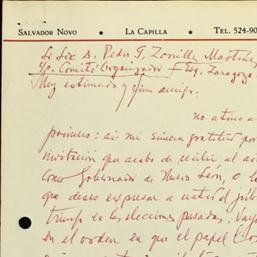 SALVADOR NOVO ★ LA CAPILLA ★ TEL. 524-90
Sr Lic D. Pedro G. Zorrilla Martínez
c/o. Comité Organizador Zaragoza
Muy estimado y fino amigo.
no atino a
primero: si mi sincera gratitud por
invitación que acabo de recibir al a
como Gobernador de Nuevo León, o l
que deseo expresar a usted el júb
triunfo en las elecciones pasadas. Vaya
en el orden en que el papel los